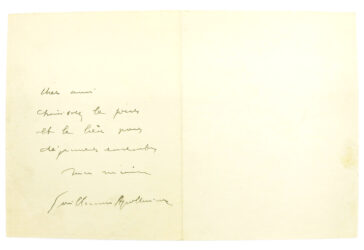 Cher ami
choisissez le jour
et le lieu pour
déjeuner ensemble
Guillaume Apollinaire